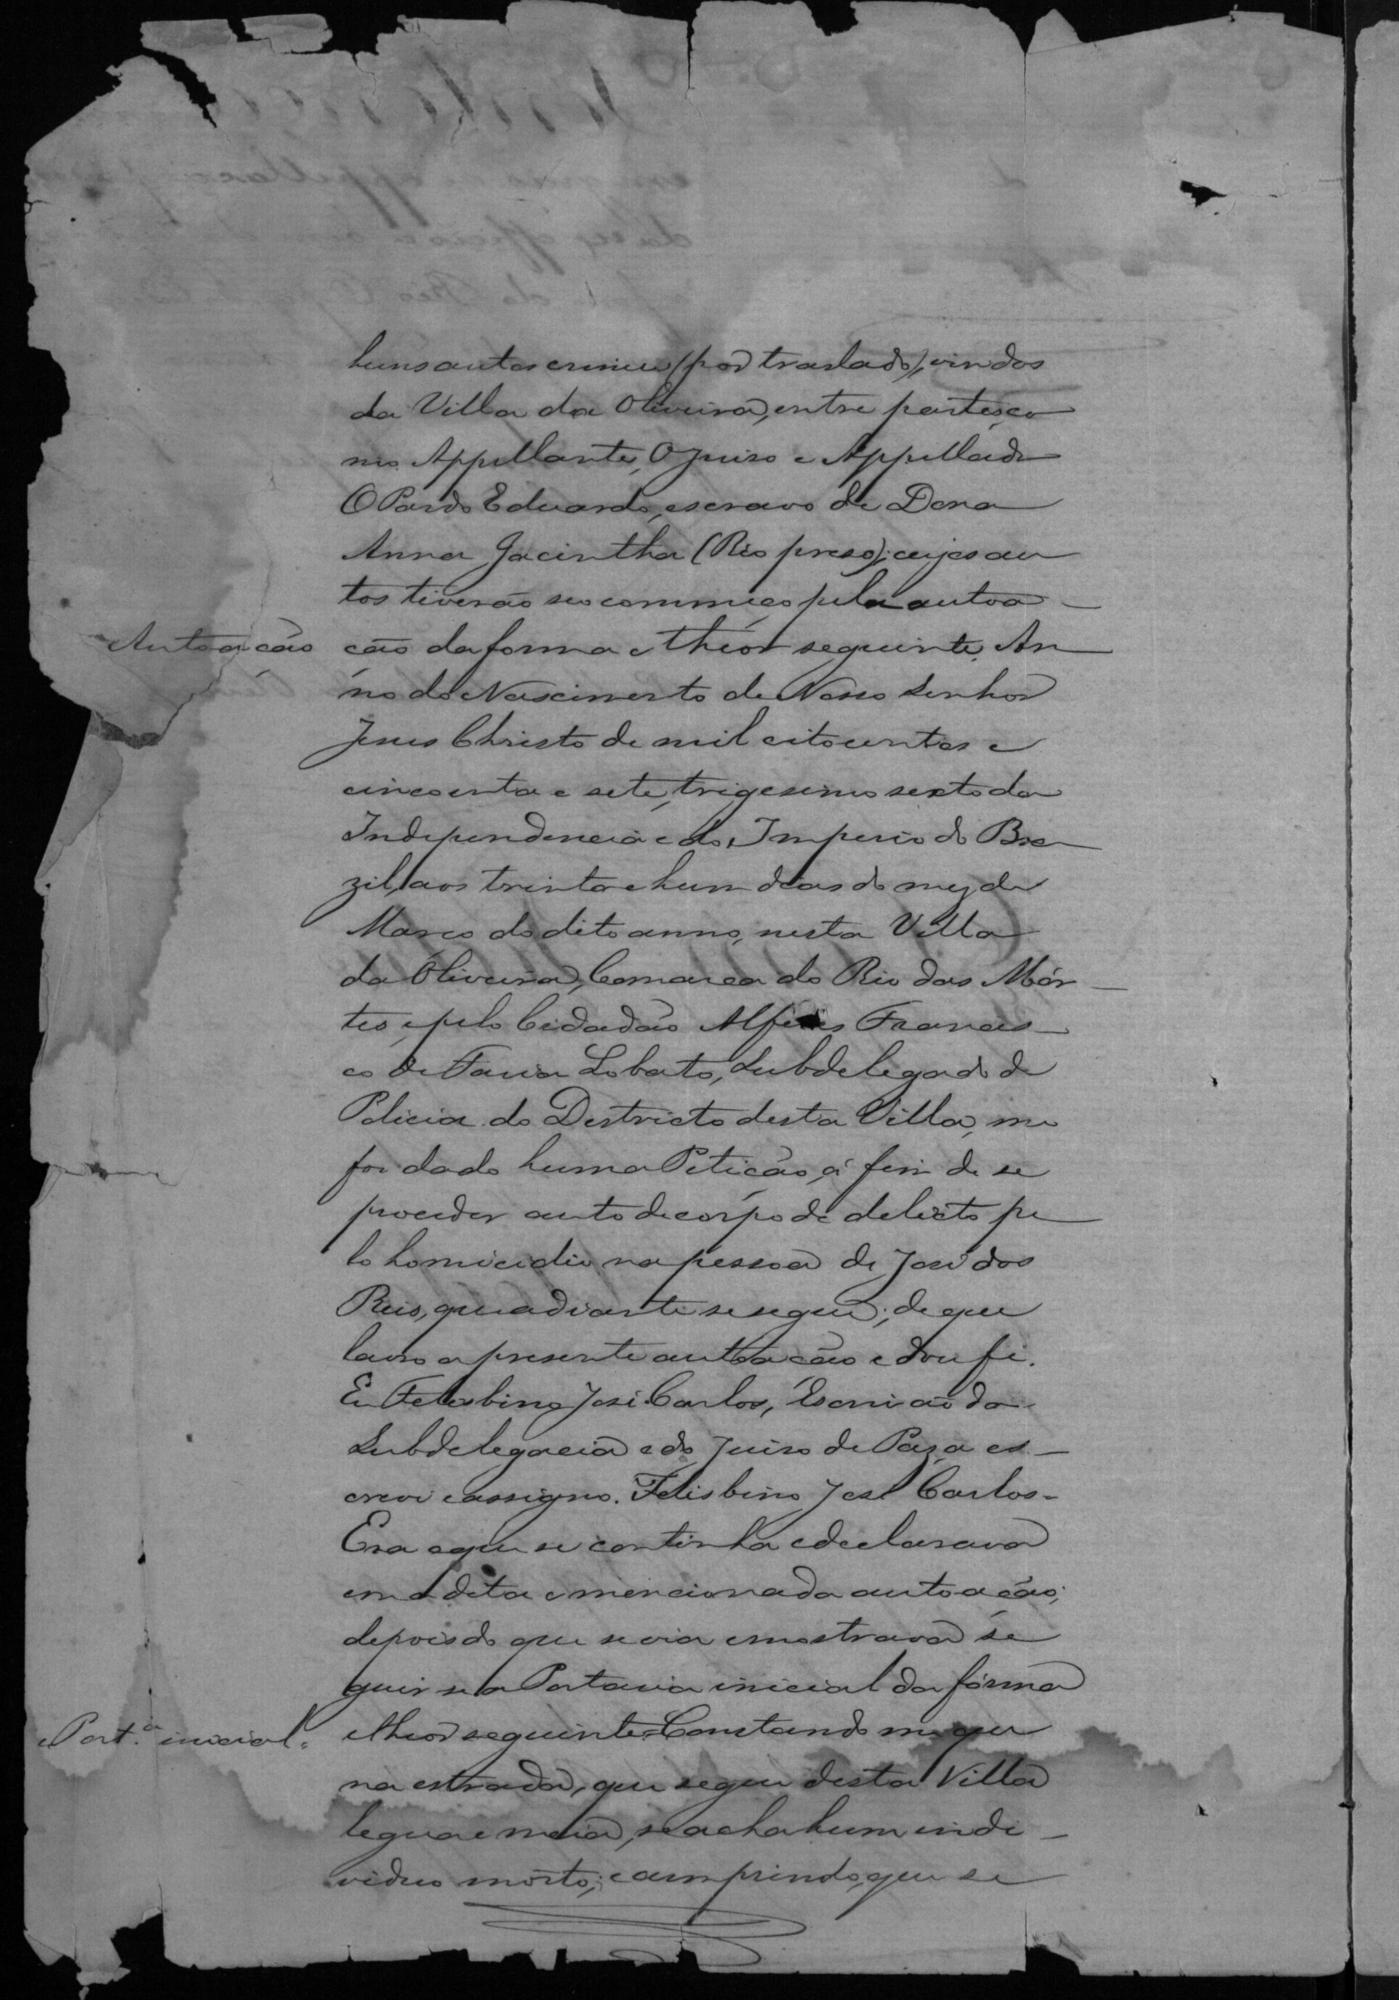 huns autos crimes (por traslado), vindos
da Villa da Oliveira, entre partes, co
mo Appellante, O Juiso e Appellado
O Pardo Eduardo, escravo de Dona
Anna Jacintha (Réo preso); cujos au
tos tiverão seo commeço pela autoa-
Autoação
ção da forma e theór seguinte. An
no do Nascimento de Nosso Senhor
Jesus Christo de mil oitocentos e
cincoenta e sete, trigesimo sexto da
Independencia e do Imperio do Bra
zil, aos trinta e hum dias do mez de
Março do dito anno, nesta Villa
da Oliveira, Comarca do Rio das Mór-
tes, e pelo Cidadão Alferes Francis-
co de Faria Lobato, Subdelegado de
Policia do Destricto desta Villa, me
foi dado huma Petição, á fim de se
proceder auto de corpo de delicto pe
lo homicidio na pessoa de José dos
Reis, que adiante se segue; de que
lavro a presente autoação e dou fé.
Eu Felisbino José Carlos, Escrivão da
Subdelegacia e do Juiso de Paz, a es-
crevi e assigno. Felisbino José Carlos-
Era o que se continha e declarava
em a dita e mencionada autoação;
depois do que se via e mostrava se
guir se a Portaria inicial da fórma
Port.ª inicial.
e theor seguinte: Constando me que
na estrada, que segue desta Villa
legua e meia, se acha hum indi-
viduo mórto; cumprindo, que se